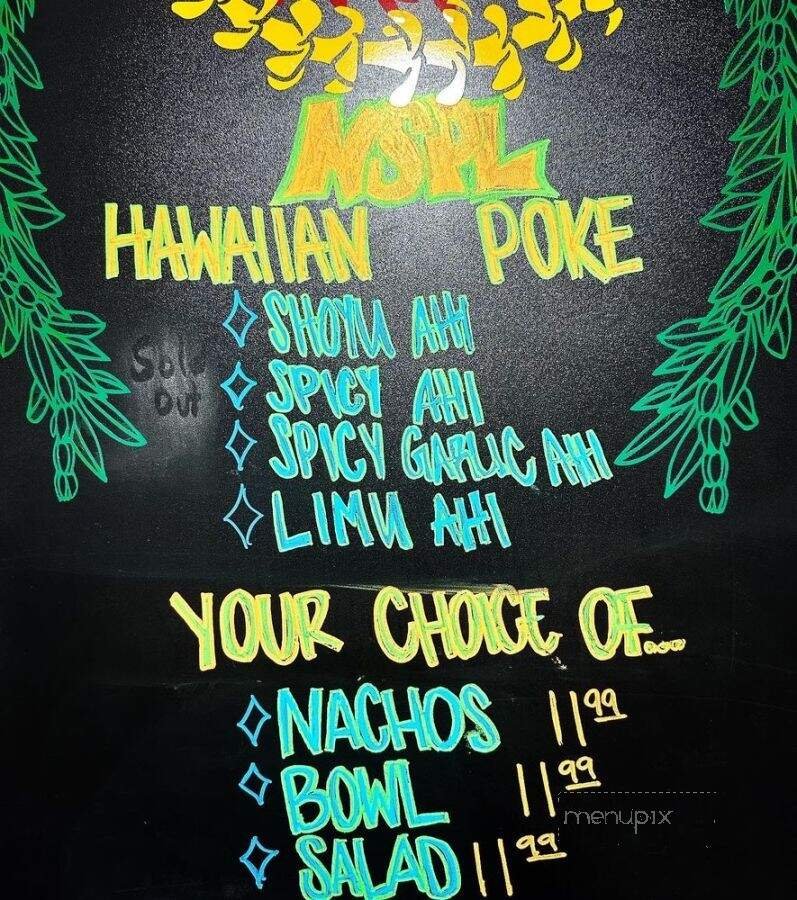 NSPL
HAWAIIAN POKE
SHOYU AHI
Sold
Out
SPICY AHI
SPICY GARLIC AHI
LIMU AHI
YOUR CHOICE OF...
NACHOS 11.99
BOWL 11.99
SALAD 11.99
menupix